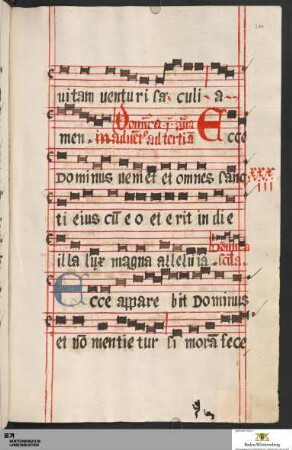 uitam uenturi sa culi a
men. Domica i. aduē
in aduēt ad tertiā Ecce
Dominus ueniet et omnes sanc
XXX
III
ti eius cū eo et erit in die
illa lux magna alleluia.
Ecce appare bit Dominus
et nō mentietur si morā fece